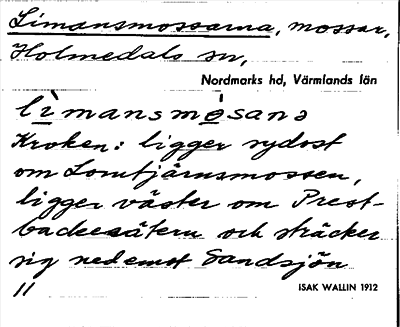 Limansmossarna, mossar,
Holmedals sn,
Nordmarks hd, Värmlands län
lìmansmósanə
Kroken: ligger sydost
om Lomtjärnsmossen,
ligger väster om Prest-
backesätern och sträcker
sig nedemot Sandsjön
11
ISAK WALLIN 1912